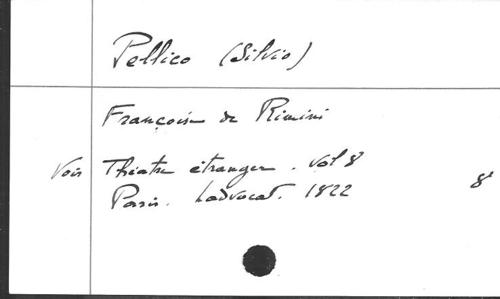 Pellico (Silvio)
Françoise de Rimini
Voir Théâtre étranger. vol 8
Paris. Ladvocat. 1822 8°